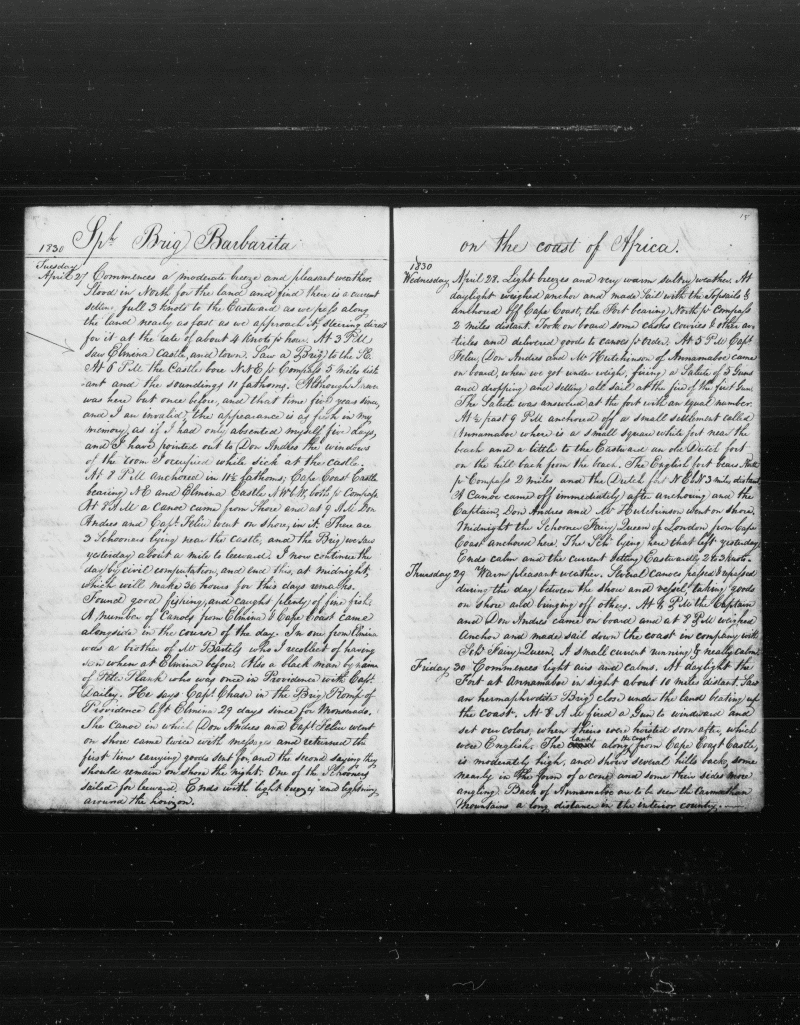 1830 Sph Brig Barbarita
Tuesday
April 27 Commences a moderate breeze and pleasant weather.
Stood in North for the land and find there is a current
setting full 3 knots to the Eastward as we pass along
the land nearly as fast as we approach it, steering direct
for it at the rate of about 4 knots pr hour. At 3 P.M
saw Elmina Castle, and town. Saw a Brig to the SE.
At 6 P.M the Castle bore N.N.E pr Compass 5 miles dist-
ant and the soundings 11 fathoms. Although I
was here but once before, and that time five years since,
and I an invalid, the appearance is as fresh in my
memory, as if I had only absented myself five days,
and I have pointed out to Don Andres the windows
of the room I occupied while sick at the castle.
At 8 P.M anchored in 11½ fathoms, Cape Coast Castle
bearing NE and Elmina Castle NWbW, both pr Compass
At 8 A.M a canoe came from Shore and at 9 A.M Don
Andres and Capt. Feliu went on shore, in it. There are
3 Schooners lying near the castle, and the Brig we saw
yesterday about a mile to leeward. I now continue the
day by civil computation, and end this, at midnight,
which will make 36 hours for this days remarks.
Found good fishing, and caught plenty of fine fish.
A number of Canoes from Elmina & Cape Coast came
alongside in the course of the day. In one from Elmina
was a brother of Mr Bartels who I recollect of having
seen when at Elmina before. Also a black man by name
of Plank who was once in Providence with Capt.
Dailey. He says Capt Chase in the Brig Romp of
Providence left Elmina 29 days since for Monserado.
The Canoe in which Don Andres and Capt. Feliu went
on shore came twice with messages and returned the
first time carrying goods sent for, and the second saying they
should remain on shore the night. One of the Schooners
sailed for leeward. Ends with light breezes and lightning
around the horizon.
15
on the coast of Africa.
1830
Wednesday April 28. Light breezes and very warm sultry weather. At
daylight weighed anchor and made sail with the Topsails &
anchored off Cape Coast, the Fort bearing North pr Compass
2 miles distant. Took on board some casks cowries & other ar-
ticles and delivered goods to canoes pr order. At 5 P.M Capt
Feliu, Don Andres and Mr Hutchinson of Annamaboe came
on board, when we got under weigh, firing a Salute of 5 Guns
and dropping and setting all sail at the fire of the first Gun.
The Salute was answered at the fort with an equal number.
At ½ past 9 P.M anchored off a small settlement called
Annamaboe where is a small square white fort near the
beach and a little to the Eastward an old Dutch fort
on the hill back from the beach. The English fort bears North
pr Compass 2 miles and the Dutch fort NEbN 3 miles distant
A Canoe came off immediately after anchoring and the
Captain, Don Andres and Mr Hutchinson went on shore.
Midnight the Schooner Fairy Queen of London from Cape
Coast anchored here. The Schr lying here that left yesterday.
Ends calm and the current setting Eastwardly 2 to 3 knots.
Thursday 29 Warm pleasant weather. Several canoes passed & repassed
during the day between the shore and vessel, taking goods
on shore and bringing off others. At ½ P.M the Captain
and Don Andres came on board and at 8 P.M weighed
Anchor and made sail down the coast in company with
Sch Fairy Queen. A small current running & nearly calm
Friday 30 Commences light airs and calms. At daylight the
Fort at Annamaboe in sight about 10 miles distant. Saw
an hermaphrodite Brig close under the land beating up
the coast. At 8 A M fired a Gun to windward and
set our colors, when theirs were hoisted soon after, which
were English. The land along the coast from Cape Coast Castle,
is moderately high, and shows several hills back, some
nearly in the form of a cone and some their sides more
angling. Back of Annamaboe are to be seen the
Mountains a long distance in the interior country.